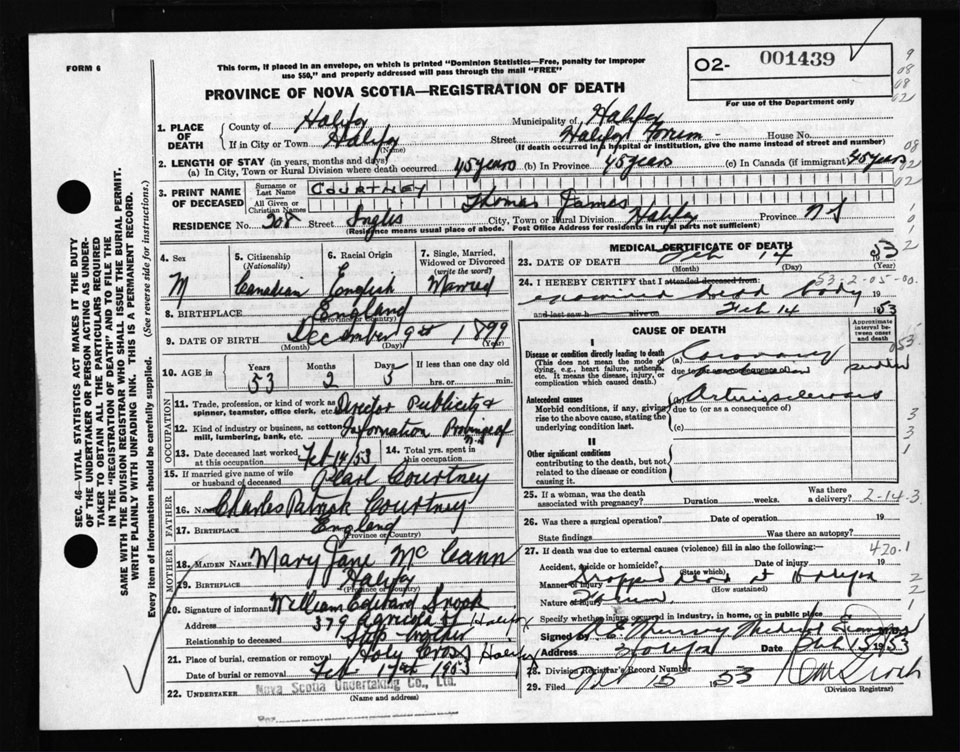 FORM 6
This form, if placed in an envelope, on which is printed "Dominion Statistics—Free, penalty for improper
use $50," and properly addressed will pass through the mail "FREE"
PROVINCE OF NOVA SCOTIA—REGISTRATION OF DEATH
O2- 001439
For use of the Department only
9
08
08
02
1. PLACE OF DEATH
County of Halifax Municipality of Halifax
If in City or Town Halifax (Name) Street Halifax Forum House No.
(If death occurred in a hospital or institution, give the name instead of street and number)
2. LENGTH OF STAY (in years, months and days)
(a) In City, Town or Rural Division where death occurred 45 years (b) In Province 45 years (c) In Canada (if immigrant) 45 years
08
02
02
3. PRINT NAME OF DECEASED
Surname or Last Name COURTNEY
All Given or Christian Names Thomas James
RESIDENCE No. 208 Street Inglis City, Town or Rural Division Halifax Province N S
(Residence means usual place of abode. Post Office Address for residents in rural parts not sufficient)
1
0
1
2
SEC. 46—VITAL STATISTICS ACT MAKES IT THE DUTY
OF THE UNDERTAKER OR PERSON ACTING AS UNDER-
TAKER TO OBTAIN ALL THE PARTICULARS REQUIRED
IN THE "REGISTRATION OF DEATH" AND TO FILE THE
SAME WITH THE DIVISION REGISTRAR WHO SHALL ISSUE THE BURIAL PERMIT.
WRITE PLAINLY WITH UNFADING INK. THIS IS A PERMANENT RECORD.
Every item of information should be carefully supplied. (See reverse side for instructions.)
4. Sex M
5. Citizenship (Nationality) Canadian
6. Racial Origin English
7. Single, Married, Widowed or Divorced (write the word) Married
8. BIRTHPLACE England
(Province or Country)
9. DATE OF BIRTH December 9th 1899
(Month) (Day) (Year)
10. AGE in Years 53 Months 2 Days 5 If less than one day old hrs. or min.
OCCUPATION
11. Trade, profession, or kind of work as spinner, teamster, office clerk, etc. Director Publicity &
12. Kind of industry or business, as cotton mill, lumbering, bank, etc. Information Province of N.S.
13. Date deceased last worked at this occupation Feb 14/53
14. Total yrs. spent in this occupation
15. If married give name of wife or husband of deceased Pearl Courtney
FATHER
16. NAME Charles Patrick Courtney
17. BIRTHPLACE England
(Province or Country)
MOTHER
18. MAIDEN NAME Mary Jane McCann
19. BIRTHPLACE Halifax
(Province or Country)
20. Signature of informant William Edward Snook
Address 379 Agricola St Halifax
Relationship to deceased Step brother
21. Place of burial, cremation or removal Holy Cross Halifax
Date of burial or removal Feb 17th 1953
22. UNDERTAKER Nova Scotia Undertaking Co., Ltd.
(Name and address)
MEDICAL CERTIFICATE OF DEATH
23. DATE OF DEATH Feb 14 1953
(Month) (Day) (Year)
24. I HEREBY CERTIFY that I attended deceased from:
532-05-00
examined dead body 19
and last saw h alive on Feb 14 1953
CAUSE OF DEATH
Approximate interval between onset and death
I
Disease or condition directly leading to death
(This does not mean the mode of dying, e.g., heart failure, asthenia, etc. It means the disease, injury, or complication which caused death.)
(a) Coronary
due to
sudden
053
Antecedent causes
Morbid conditions, if any, giving rise to the above cause, stating the underlying condition last.
Arteriosclerosis
due to (or as a consequence of)
(c)
3
3
1
II
Other significant conditions
contributing to the death, but not related to the disease or condition causing it.
25. If a woman, was the death associated with pregnancy? Duration weeks. Was there a delivery?
2-14-3
26. Was there a surgical operation? Date of operation 19
State findings Was there an autopsy?
27. If death was due to external causes (violence) fill in also the following:—
420.1
Accident, suicide or homicide? Date of injury 19
(State which)
Manner of injury Dropped dead at Halifax
(How sustained)
Nature of injury Forum
2
2
1
Specify whether injury occurred in industry, in home, or in public place
Signed by Murray Medical Examiner
Address Halifax Date Feb 15 1953
28. Division Registrar's Record Number
29. Filed 15 1953
(Division Registrar)